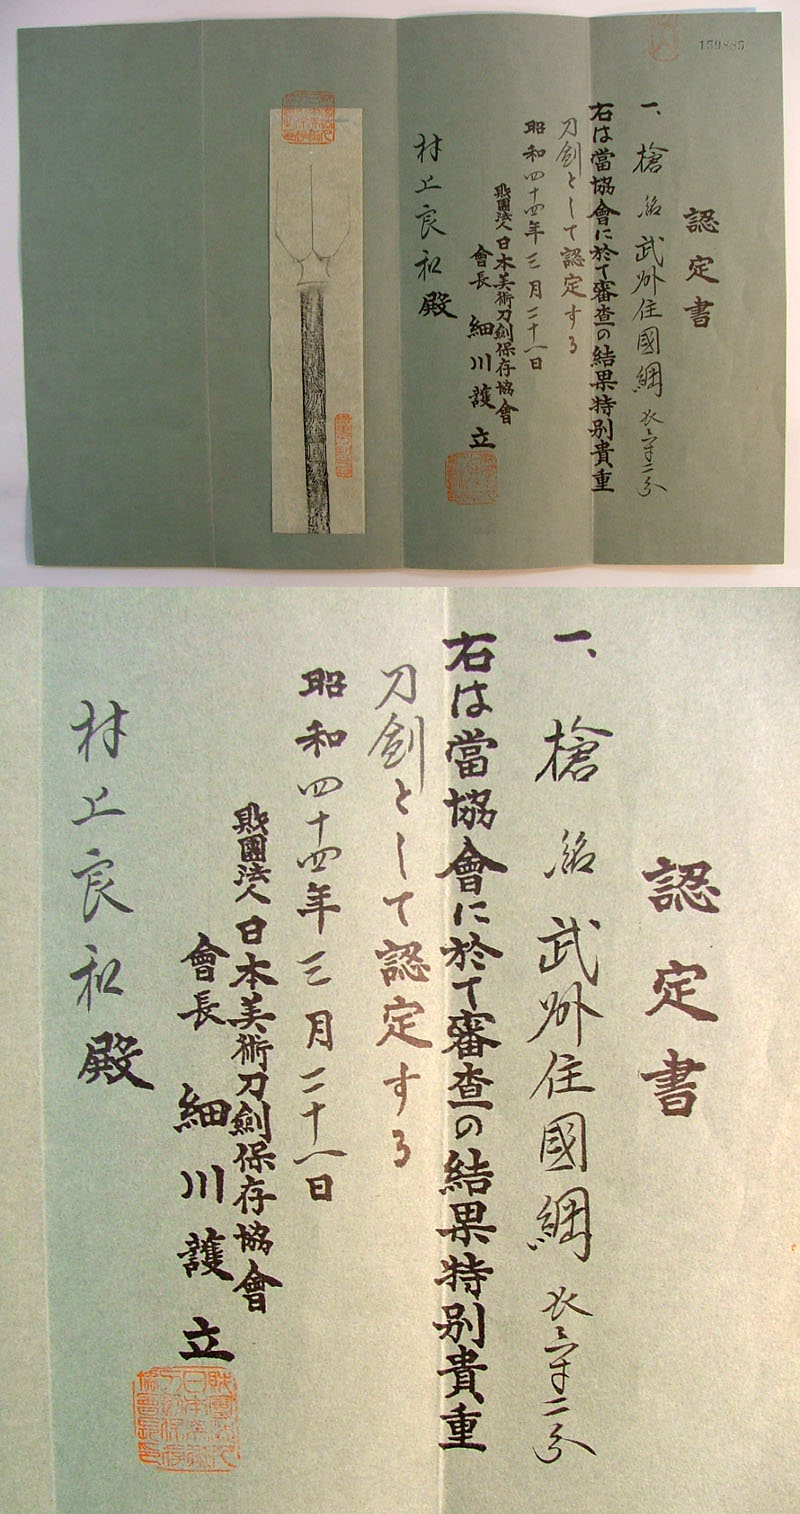 159885
認定書
一、槍 銘 武州住國綱 長 寸二分
右は當協會に於て審査の結果特別貴重
刀劍として認定する
昭和四十四年三月二十一日
財團法人日本美術刀劍保存協會
會長 細川護立
村上良和殿
認定書
一、槍 銘 武州住國綱 長 寸二分
右は當協會に於て審査の結果特別貴重
刀劍として認定する
昭和四十四年三月二十一日
財團法人日本美術刀劍保存協會
會長 細川護立
村上良和殿